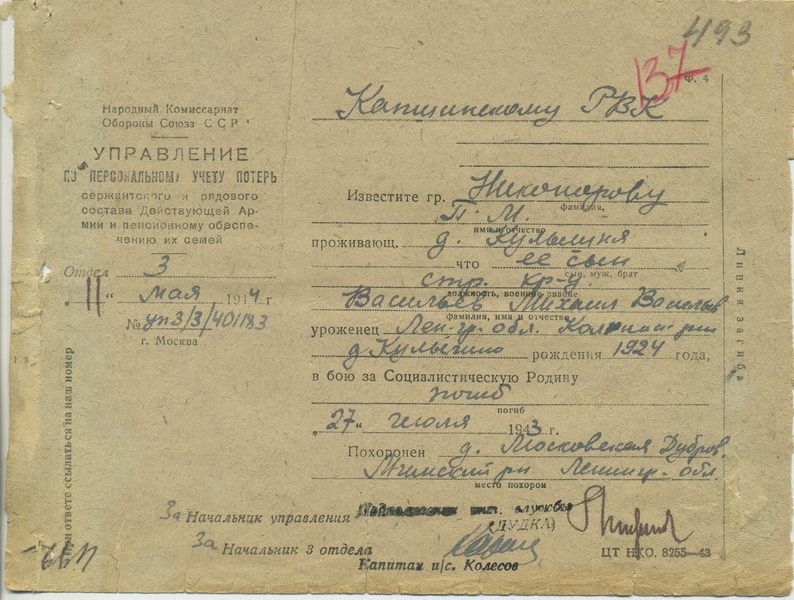 493
137
Ф. 4
Народный Комиссариат
Обороны Союза ССР
УПРАВЛЕНИЕ
ПО ПЕРСОНАЛЬНОМУ УЧЕТУ ПОТЕРЬ
сержантского и рядового
состава Действующей Ар-
мии и пенсионному обеспе-
чению их семей
Отдел 3
"11" мая 1944 г
№ уп3/3/401183
г. Москва
При ответе ссылаться на наш номер
Капшинскому РВК
Известите гр. Никонорову
фамилия,
П. М.
имя и отчество
проживающ. д.
что ее сын
сын, муж, брат
стр. кр-ц
должность, военное звание
Васильев Михаил Васильев
фамилия, имя и отчество
уроженец Лен-гр. обл.
д. рождения 1924 года,
в бою за Социалистическую Родину
погиб
погиб
"27" июля 1943 г.
Похоронен д. Московская Дубров.
Мгинский рн Ленингр. обл.
место похорон
За Начальник управления службы
(ДУДКА)
За Начальник 3 отдела
Капитан и/с. Колесов
ЦТ НКО. 8255—43
Линия загиба